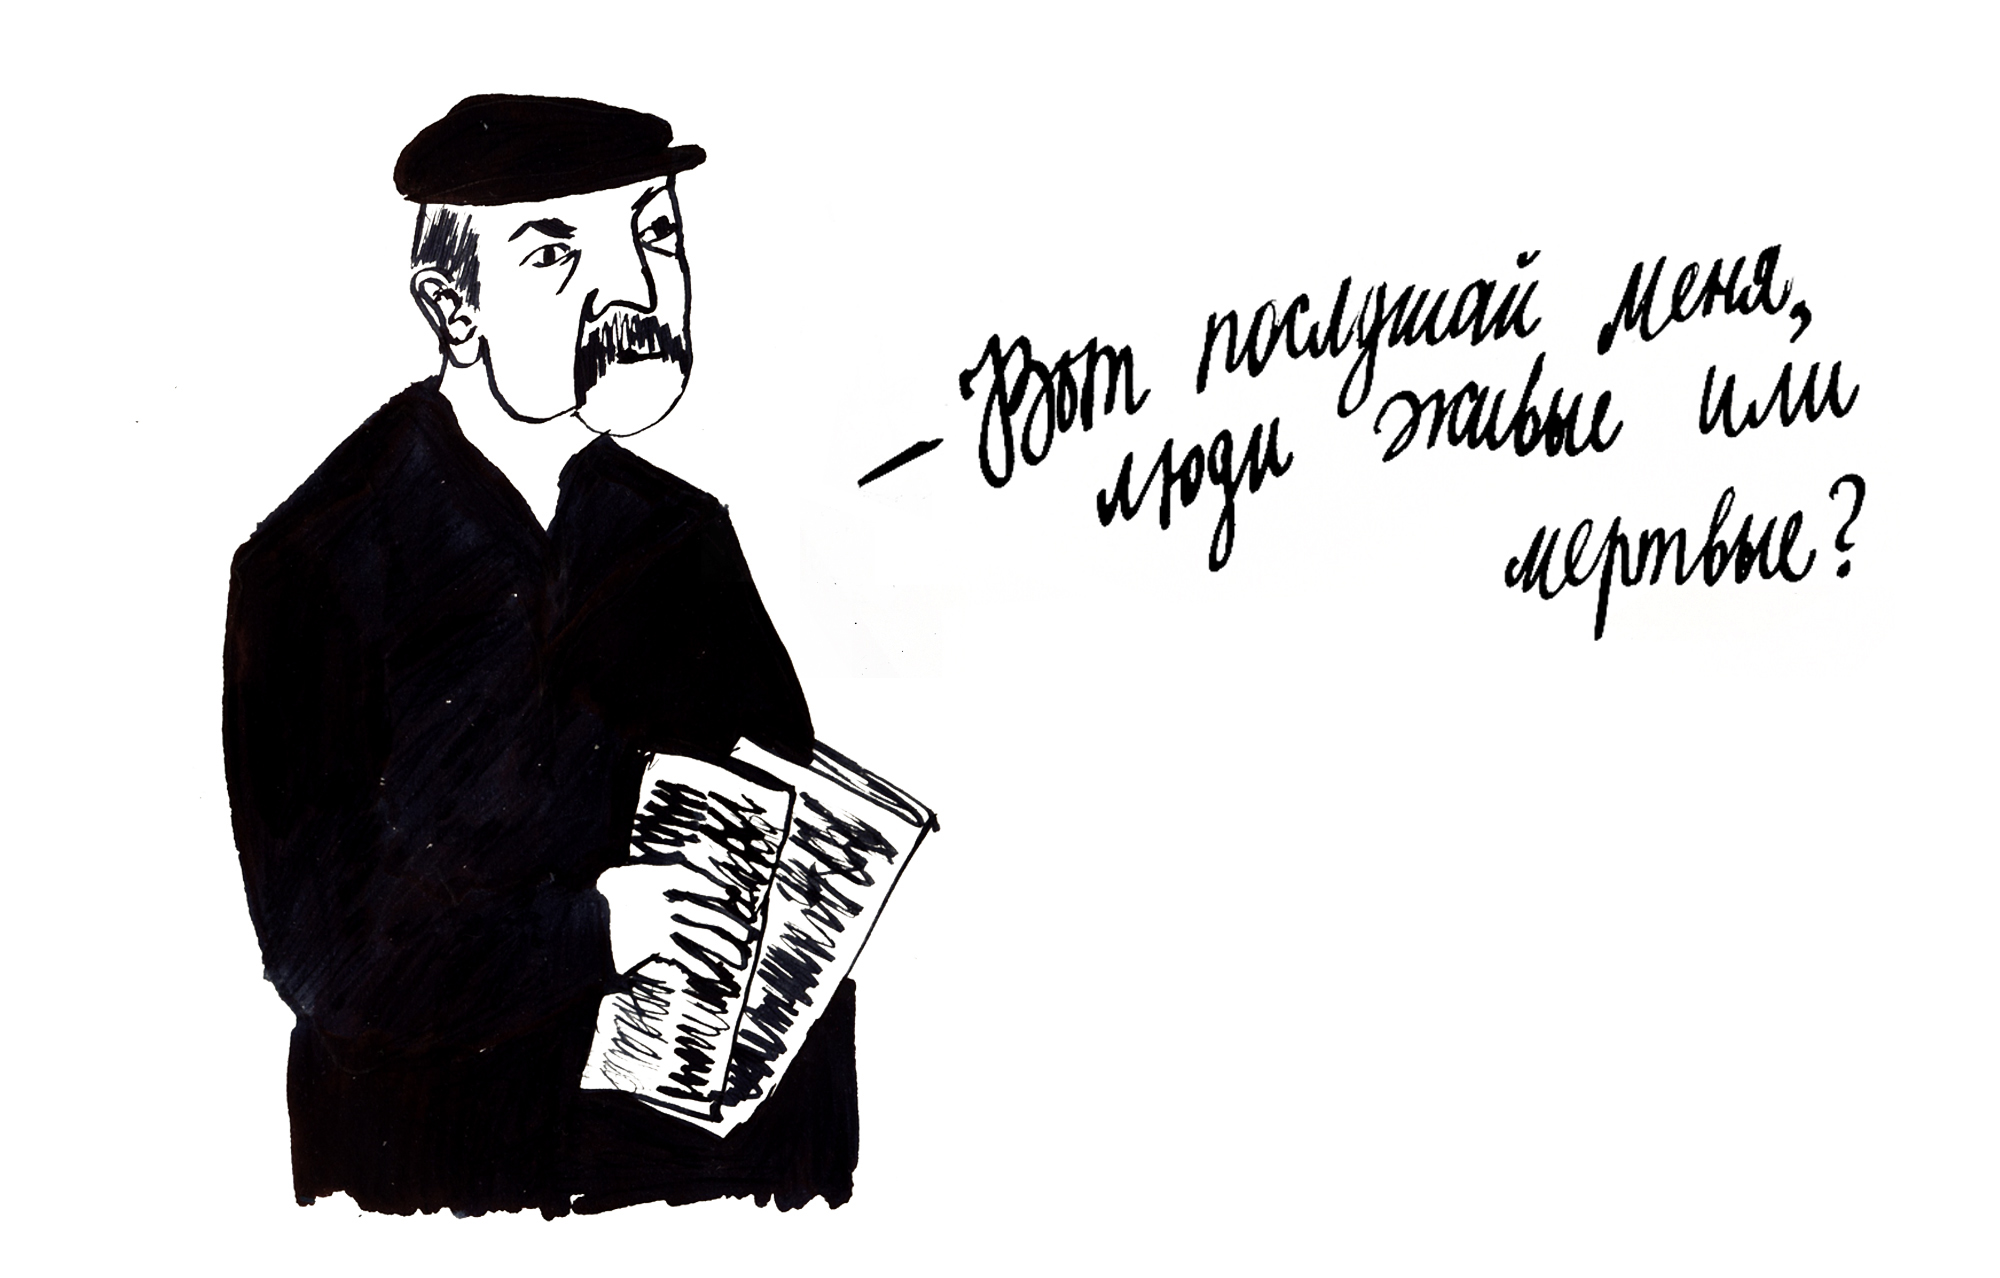 — Вот послушай меня,
люди живые или
мертвые?